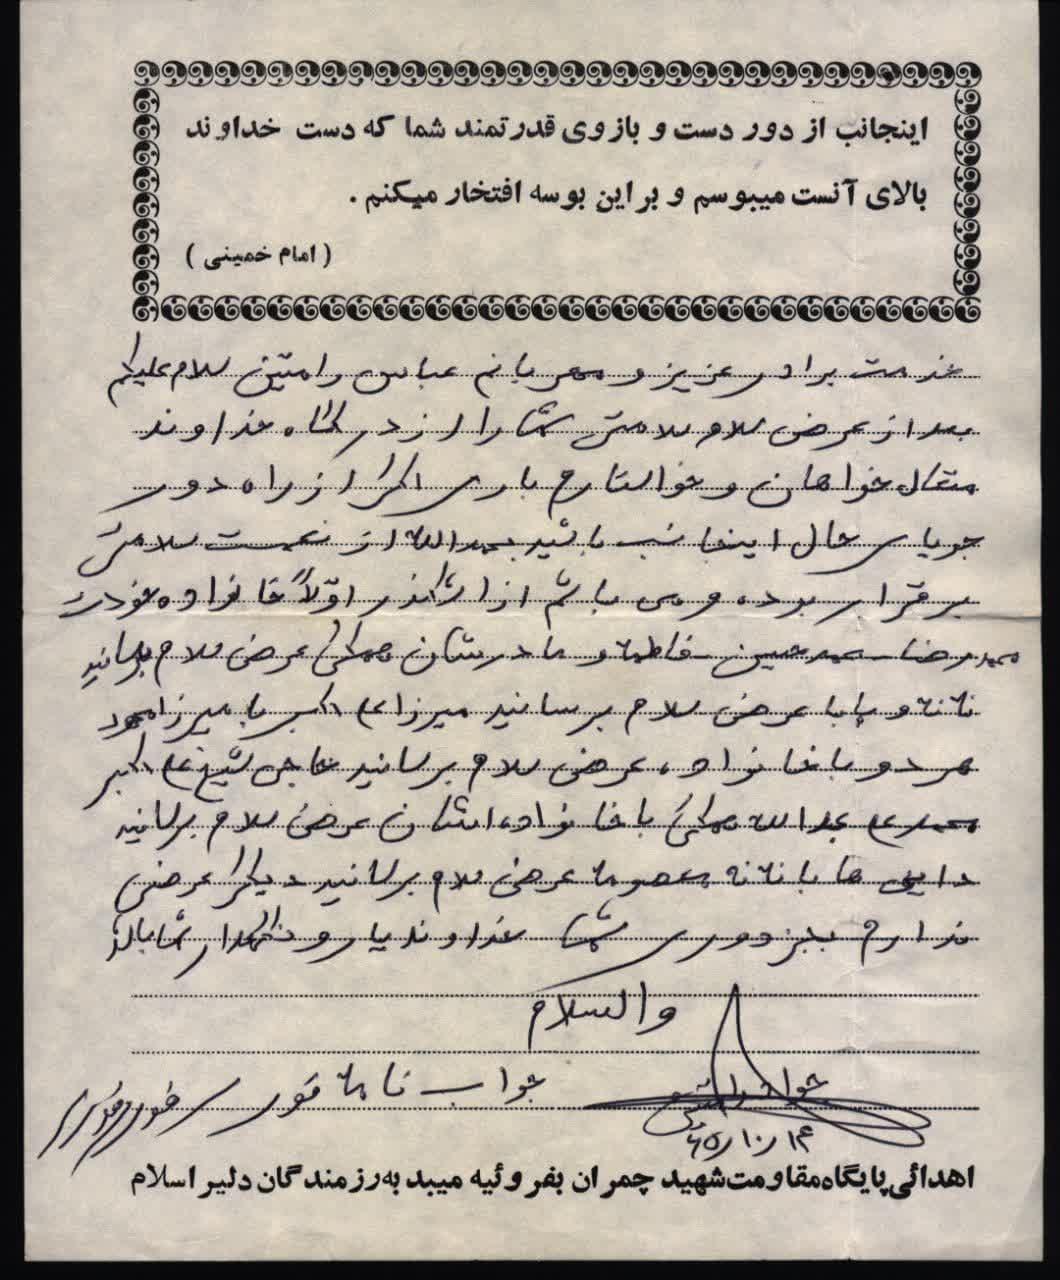 اینجانب از دور دست و بازوی قدرتمند شما که دست خداوند
بالای آنست میبوسم و بر این بوسه افتخار میکنم .
( امام خمینی )
خدمت برادر عزیز و مهربانم عباس رامتین سلام علیکم
بعد از عرض سلام سلامتی شما را از درگاه خداوند
متعال خواهان و خواستارم باری اگر از راه دور
جویای حال اینجانب باشید بحمدالله از نعمت سلامتی
برقرار بوده و می باشم اولاً خانواده خودت
محمدرضا محمدحسین فاطمه و مادرشان همگی عرض سلام برسانید
ننه و بابا عرض سلام برسانید میرزا علی اکبر با میرزا محمود
هر دو با خانواده عرض سلام برسانید حاجی شیخ علی اکبر
محمدعلی عبدالله همگی با خانواده‌اشان عرض سلام برسانید
دایی ها با ننه معصومه عرض سلام برسانید دیگر عرضی
ندارم بجز دوری شما خداوند یار و نگهدار شما باد
والسلام
جواد رامتین
جواب نامه فوری
۶۵/۱۰/۱۴
اهدائی پایگاه مقاومت شهید چمران بفروئیه میبد به رزمندگان دلیر اسلام